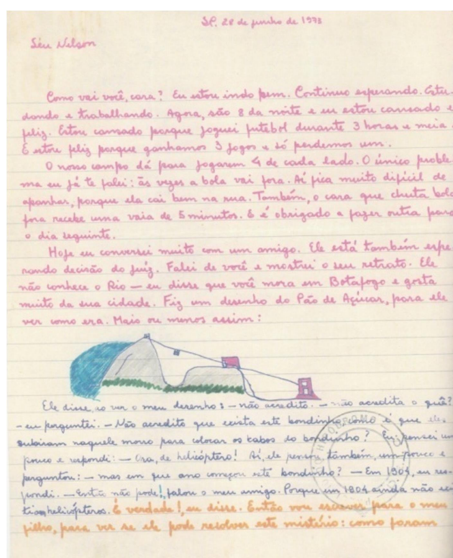 SP, 28 de junho de 1973
Seu Nelson
Como vai você, cara? Eu estou indo bem. Continuo esperando. Estu
dando e trabalhando. Agora, são 8 da noite e eu estou cansado e
feliz. Estou cansado porque joguei futebol durante 3 horas e meia.
E estou feliz porque ganhamos 3 jogos e só perdemos um.
O nosso campo dá para jogarem 4 de cada lado. O único proble
ma eu já te falei: às vezes a bola vai fora. Aí fica muito difícil de
apanhar, porque ela cai bem na rua. Também, o cara que chuta bola
fora recebe uma vaia de 5 minutos. E é obrigado a fazer outra para
o dia seguinte.
Hoje eu conversei muito com um amigo. Ele está também espe
rando decisão do juiz. Falei de você e mostrei o seu retrato. Ele
não conhece o Rio — eu disse que você mora em Botafogo e gosta
muito da sua cidade. Fiz um desenho do Pão de Açúcar, para ele
ver como era. Mais ou menos assim:
Ele disse ao ver o meu desenho: — não acredito. — não acredita o quê?
— eu perguntei. — Não acredito que exista este bondinho. Como é que eles
subiram naquele morro para colocar os cabos do bondinho? Eu pensei um
pouco e respondi: — Ora, de helicóptero! Aí, ele pensou, também, um pouco e
perguntou: — mas em que ano começou este bondinho? — Em 1904, eu res
pondi. — Então não pode!, falou o meu amigo. Porque em 1904 ainda não
helicópteros. É verdade!, eu disse. Então vou escrever para o meu
filho, para ver se ele pode resolver este mistério: como foram